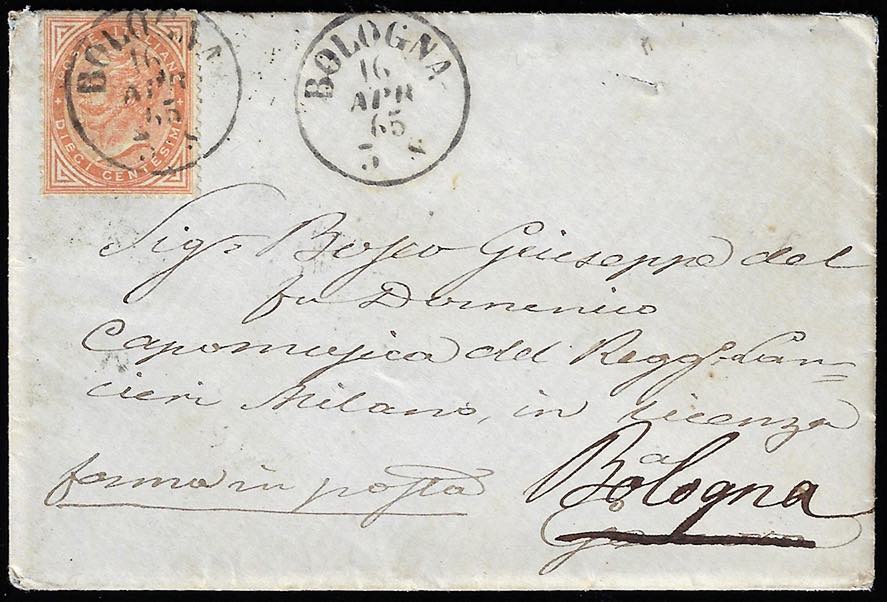 POSTE ITALIANE
DIECI CENTESIMI
BOLOGNA
16
APR
65
3 S
BOLOGNA
16
APR
65
3 S
Sigr Bosco Giuseppe del
fu Domenico
Capomusica del Reggo Lan=
cieri Milano, in licenza
a
ferma in posta
Bologna